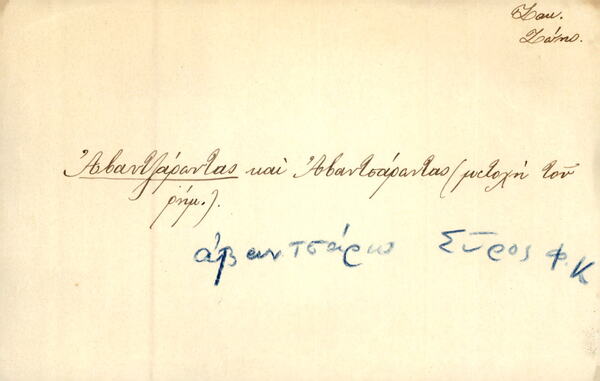 Ζακ.
Ἀβαντζάροντας καὶ Ἀβαντσάροντας (μετοχὴ τοῦ
ρήμ.).
ἀβαντσάρω Σῦρος Φ. Κ